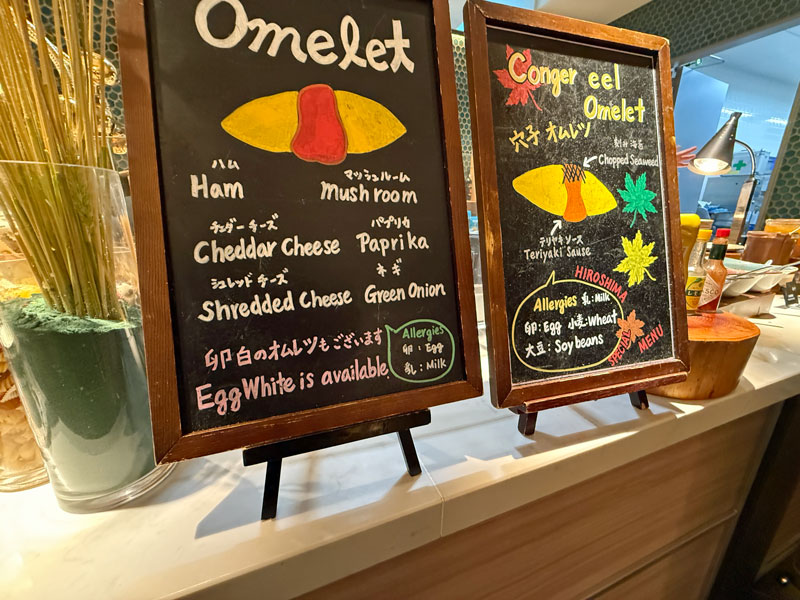 Omelet
ハム
Ham
マッシュルーム
mushroom
チェダーチーズ
Cheddar Cheese
パプリカ
Paprika
シュレッドチーズ
Shredded Cheese
ネギ
Green Onion
卵白のオムレツもございます
Egg White is available
Allergies
卵:Egg
乳:Milk
Conger eel
Omelet
穴子オムレツ
刻み海苔
Chopped Seaweed
テリヤキソース
Teriyaki Sause
Allergies 乳:Milk
卵:Egg 小麦:Wheat
大豆:Soybeans
HIROSHIMA
SPECIAL MENU